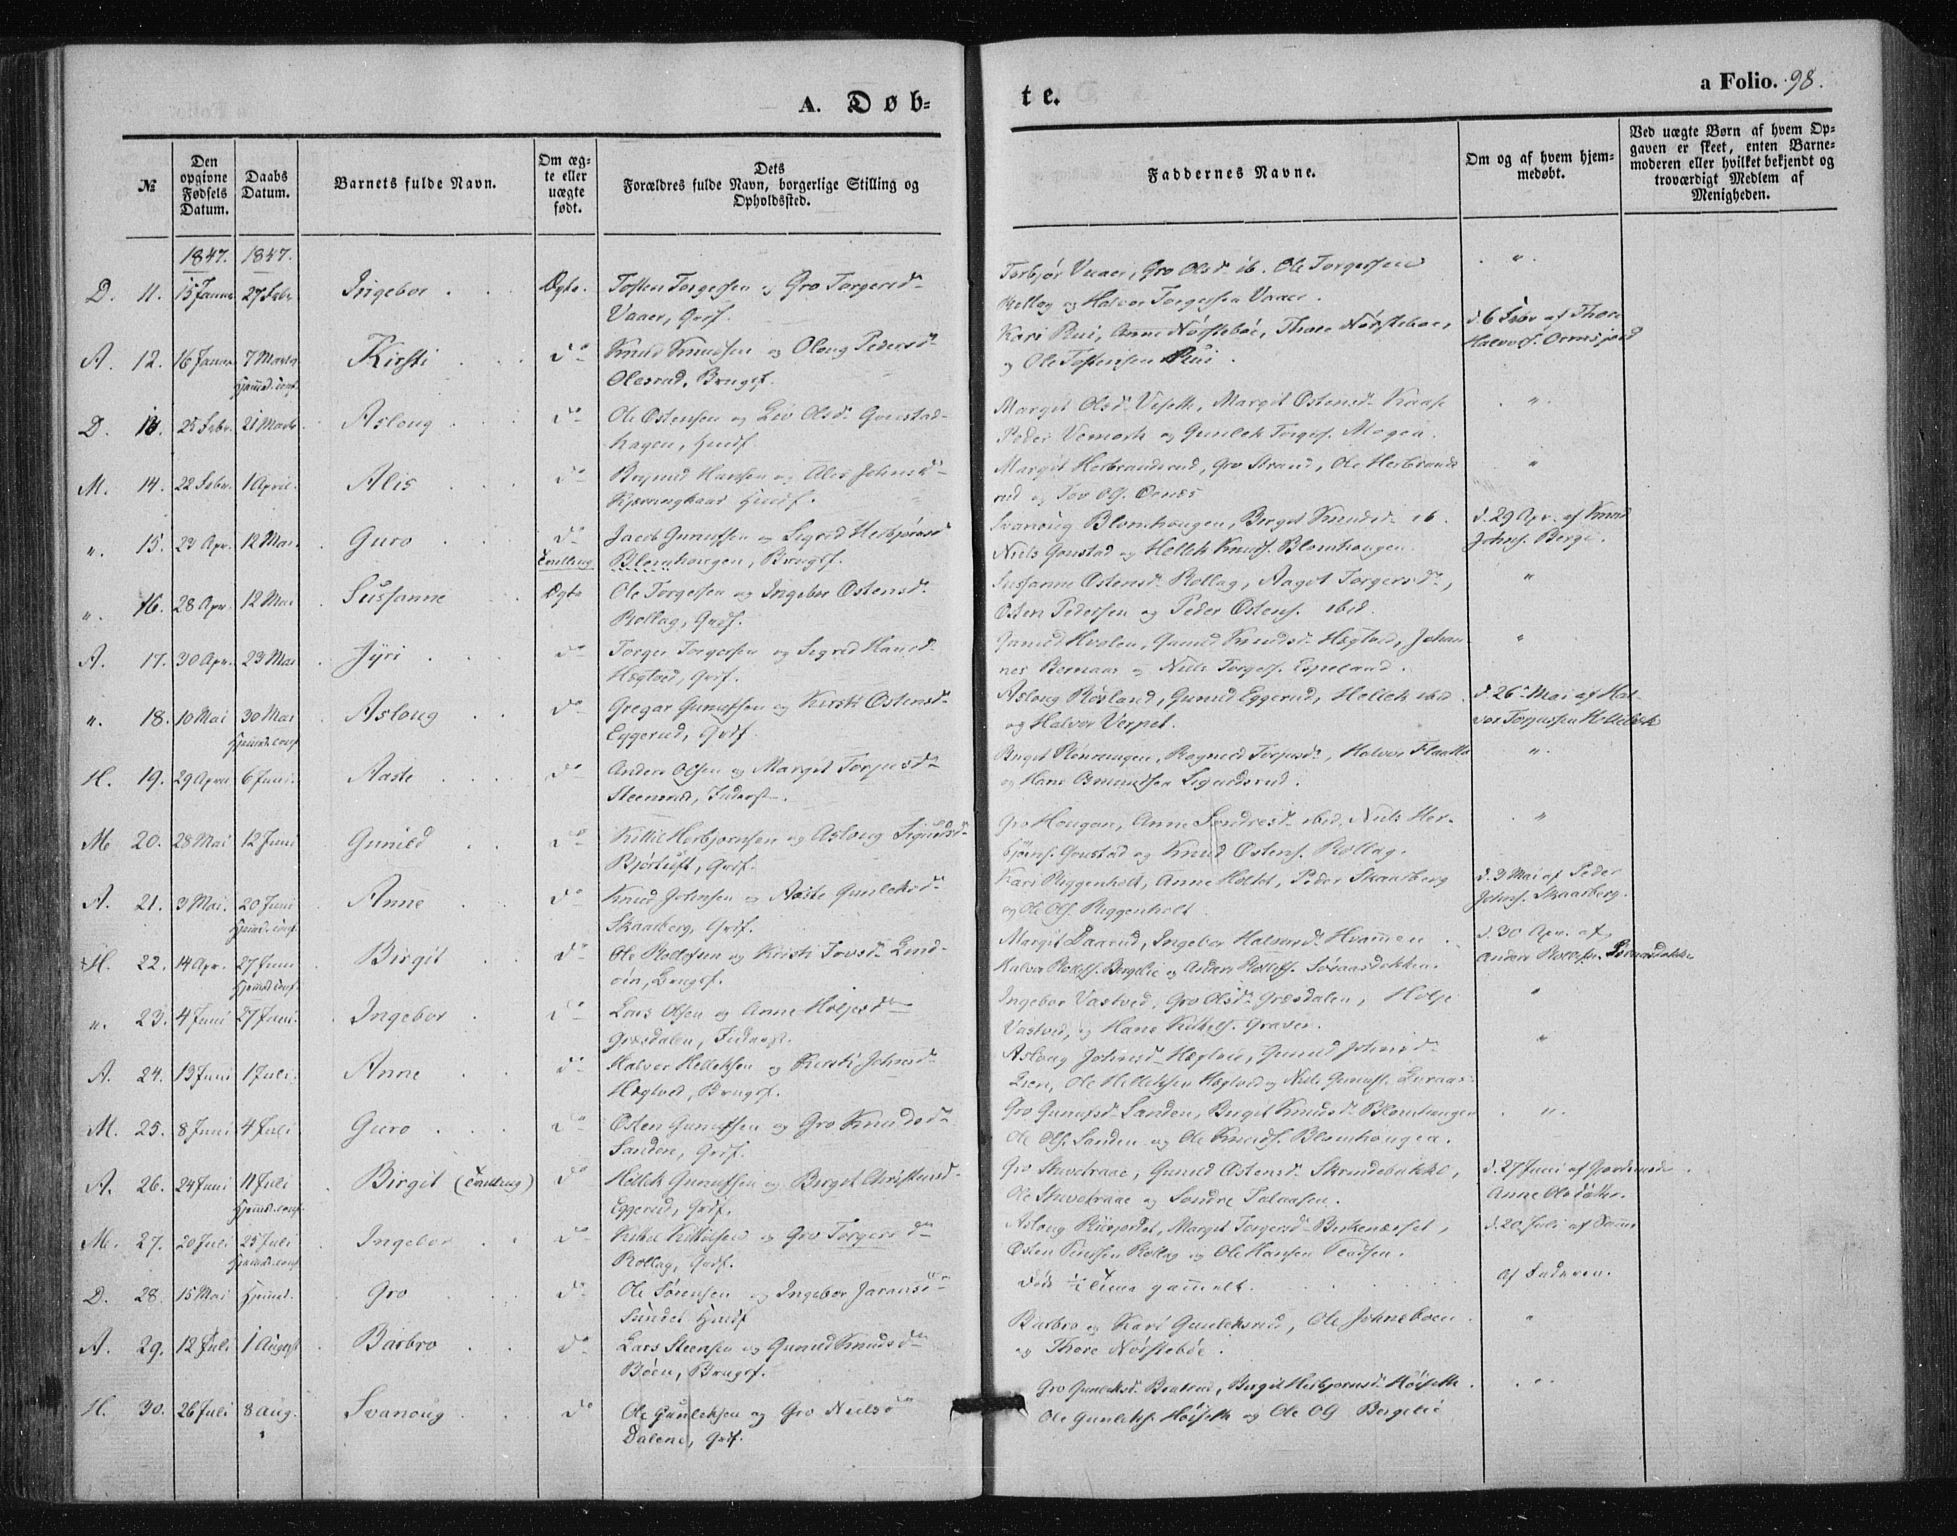 A. Døb-
te.
a Folio. 98.
№
Den opgivne Fødsels Datum.
Daabs Datum.
Barnets fulde Navn.
Om ægte eller uægte født.
Dets Forældres fulde Navn, borgerlige Stilling og Opholdssted.
Faddernes Navne.
Om og af hvem hjemmedøbt.
Ved uægte Børn af hvem Opgaven er skeet, enten Barnemoderen eller hvilket bekjendt og troværdigt Medlem af Menigheden.
1847. 1847.
D. 11. 15 Januar 27 Febr. Ingebor Ægte. Tosten Torgersen og Gro Torgersd
Vaaer, Grdf. Torbjør Vaaer, Gro Olsd. ib. Ole Torgersen
Rollag og Halvor Torgersen Vaaer. "
A. 12. 16 Januar 7 Marts Hjemd. conf. Kirsti do Knud Knudsen og Oloug Pedersd
Olesrud, Brugsf. Kari Rui, Anne Nørsteböe, Thore Nørsteboe,
og Ole Tostensen Rui. d. 6 Febr af Thore
Halvors. Ormsjord
D. 13. 25 Febr. 21 Marts Asloug do Ole Ostensen og Liv Olsd. Gvestad-
hagen, Huusf. Margit Olsd. Veseth, Margit Ostensd. Kaase
Peder Vemork og Gunlek Torgers. Mogen. "
M. 14. 22 Febr. 1 April. Alis do Brynild Hansen og Alis Johnsd
Kjerringkaas Huusf. Margit Herbrandsrud, Gro Strand, Ole Herbrands
rud og Tov Ols. Ornæs "
". 15. 23 Apr. 12 Mai. Guro do Tvilling Jacob Gunufsen og Sigrid Herbjørnsd
Blomhougen, Brugsf. Svanoug Blomhougen, Birgit Knudsd. ib.
Niels Goustad og Hellek Knuds. Blomhougen. d. 29 Apr. af Knud
Johns. Berge.
". 16. 28 Apr. 12 Mai Susanne Ægte Ole Torgersen og Ingebor Ostensd.
Rollag, Grdf. Susanne Ostensd. Rollag, Aagot Torgersd.,
Osten Pedersen og Peder Ostens. ibid. "
A. 17. 30 Apr. 23 Mai Jyri do Torger Torgersen og Sigrid Hansd.
Hægtved, Grdf. Gunild Hvalen, Gunild Knudsd. Hægtved, Johan-
nes Bernaas og Niels Torgers. Espeland. "
". 18. 10 Mai 30 Mai Hjemd. conf. Asloug do Gregar Gunufsen og Kirsti Ostensd.
Eggerud, Grdf. Asloug Røisland, Gunild Eggerud, Hellek ibid
og Halvor Verpet. d. 26 Mai af Hal-
vor Torgersen Hellebæk
H. 19. 29 April 6 Juni. Aaste do Anders Olsen og Margit Torjusd
Steensrud, Inderst. Birgit Rønningen, Ragnild Torjusd., Halvor Flaatta
og Hans Amundsen Sigurdsrud. "
M. 20. 28 Mai 12 Juni Gunild do Kittil Herbjørnsen og Asloug Sigurdsd
Bjørtuft, Grdf. Gro Hougan, Anne Sondresd. ibid. Niels Her-
bjørns. Goustad og Knud Ostens. Rollag. "
A. 21. 3 Mai. 20 Juni Hjemd. conf. Anne do Knud Johnsen og Aaste Gunleksd.
Skaarberg, Grdf. Kari Riggenholt, Anne Holtet, Peder Skaarberg
og Ole Ols. Riggenholt. d. 3 Mai af Peder
Johns. Skaarberg.
H. 22. 14 Apr. 27 Juni Hjemd. conf. Birgit do Ole Rollefsen og Kirsti Tovsd. Lind-
öin, Brugsf. Margit Daarud, Ingebor Halvorsd. Hvammen
Halvor Rollefs. Bergelie og Anders Rollefs. Söraasdekken. d. 30 Apr. af
Anders Rollefs. Søraasdekken
". 23. 4 Juni 27 Juni. Ingebor do Lars Olsen og Anne Holjesd
Græsdalen, Inderst. Ingebor Vastved, Gro Olsd. Græsdalen, Holje
Vastved, og Hans Kittels. Graver. "
A. 24. 13 Juni 1 Juli. Anne do Halvor Helleksen og Kirsti Johnsd
Hægtved, Brugsf. Asloug Johnsd. Hægtvei, Gunild Johnsd
Lien, Ole Helleksen Hægtved og Niels Gunufs. Luraas. "
M. 25. 8 Juni 4 Juli Guro do Osten Gunufsen og Gro Knudsd.
Sanden, Grdf. Gro Gunufsd. Sanden, Birgit Knudsd. Blomhougen
Ole Ols. Sanden og Ole Knuds. Blomhougen. "
A. 26. 24 Juni 11 Juli Hjemd. conf. Birgit (Tvilling) do Hellek Gunufsen og Birgit Christensd.
Eggerud, Grdf. Gro Skuvdraae, Gunild Ostensd. Skrudebakke,
Ole Skuvdraae og Sondre Talaasen. d. 27 Juni af Jordemod.
Anne Olsdatter.
M. 27. 20 Juli 25 Juli Hjemd. conf. Ingebor do Kittil Kittilsen og Gro Torgersd
Rollag, Grdf. Asloug Ruisjordet, Margit Torgersd. Birkenæsset,
Osten Knudsen Rollag og Ole Hansen. d. 20 Juli af Samme
D. 28. 15 Mai Hjemd. Gro do Ole Sörensen og Ingebor Jaransd
Sundet Huusf Død ½ Time gammelt. af Faderen.
A. 29. 12 Juli 1 August Barbro do Lars Steensen og Gunild Knudsd
Böen, Brugsf. Barbro og Kari Gunleksrud, Ole Johnsboen
og Thore Nörsteböe. "
H. 30. 26 Juli 8 Aug. Svanoug do Ole Gunleksen og Gro Nielsd
Dalene, Grdf. Gro Gunleksd. Bratrud, Birgit Herbjørnsd. Höiseth.
Ole Gunleks. Höiseth og Ole Ols Bergelie "